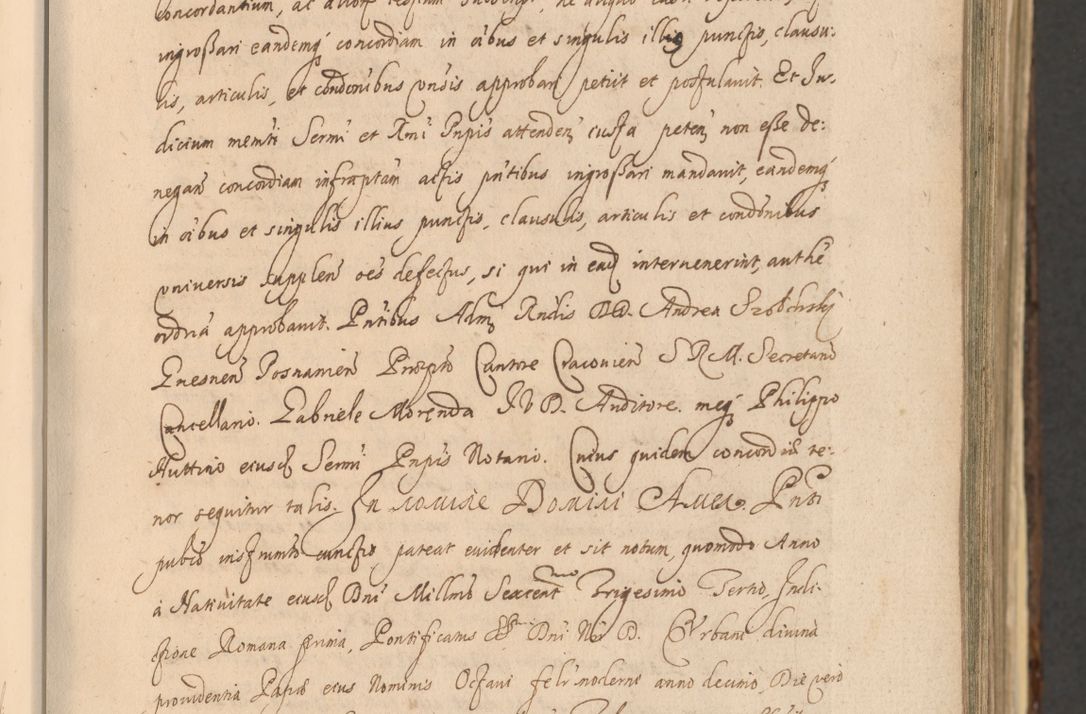 concordantium, ac
ingrossari eandemq́ concordiam in oibus et singulis illis punctis, clausu:
lis, articulis, et condonibus onsis approbari petiit et postulavit. Et Ju-
dicium memti Sermi et Rmi Pnpis attendeñ iusta peteñ non esse de:
negañ concordiam infraptam actis pntibus ingrossari mandavit, eandemq́
in oibus et singulis illius punctis, clausulis, articulis et condonibus
universis suppleñ oes defectus, si qui in eadq intervenerint, authe
ordria approbavit. Pntibus Admq Rndis DD. Andrea Szołdrskij
Gnesneñ Posnanieñ Præpto Cantore Cracovieñ S R M. Secretario
Cancellario. Gabriele Morenda JUD. Auditore. meq́ Philippo
Huttino eiusd Sermi Pnpis Notario. Cuius quidem concordiæ te:
nor sequitur talis. In nomine Domini Amen. Pnti
publco instrumto cunctis pateat evidenter et sit notum, quomodo Anno
à Nativitate eiusd Dni Millmo Sexcentmo Trigesimo Tertio, Indi-
ctione Romana prima, Pontificatus Dni Nri D. Urbani divina
providentia Papæ eius Nominis Octavi felr moderni anno decimo, Die vero